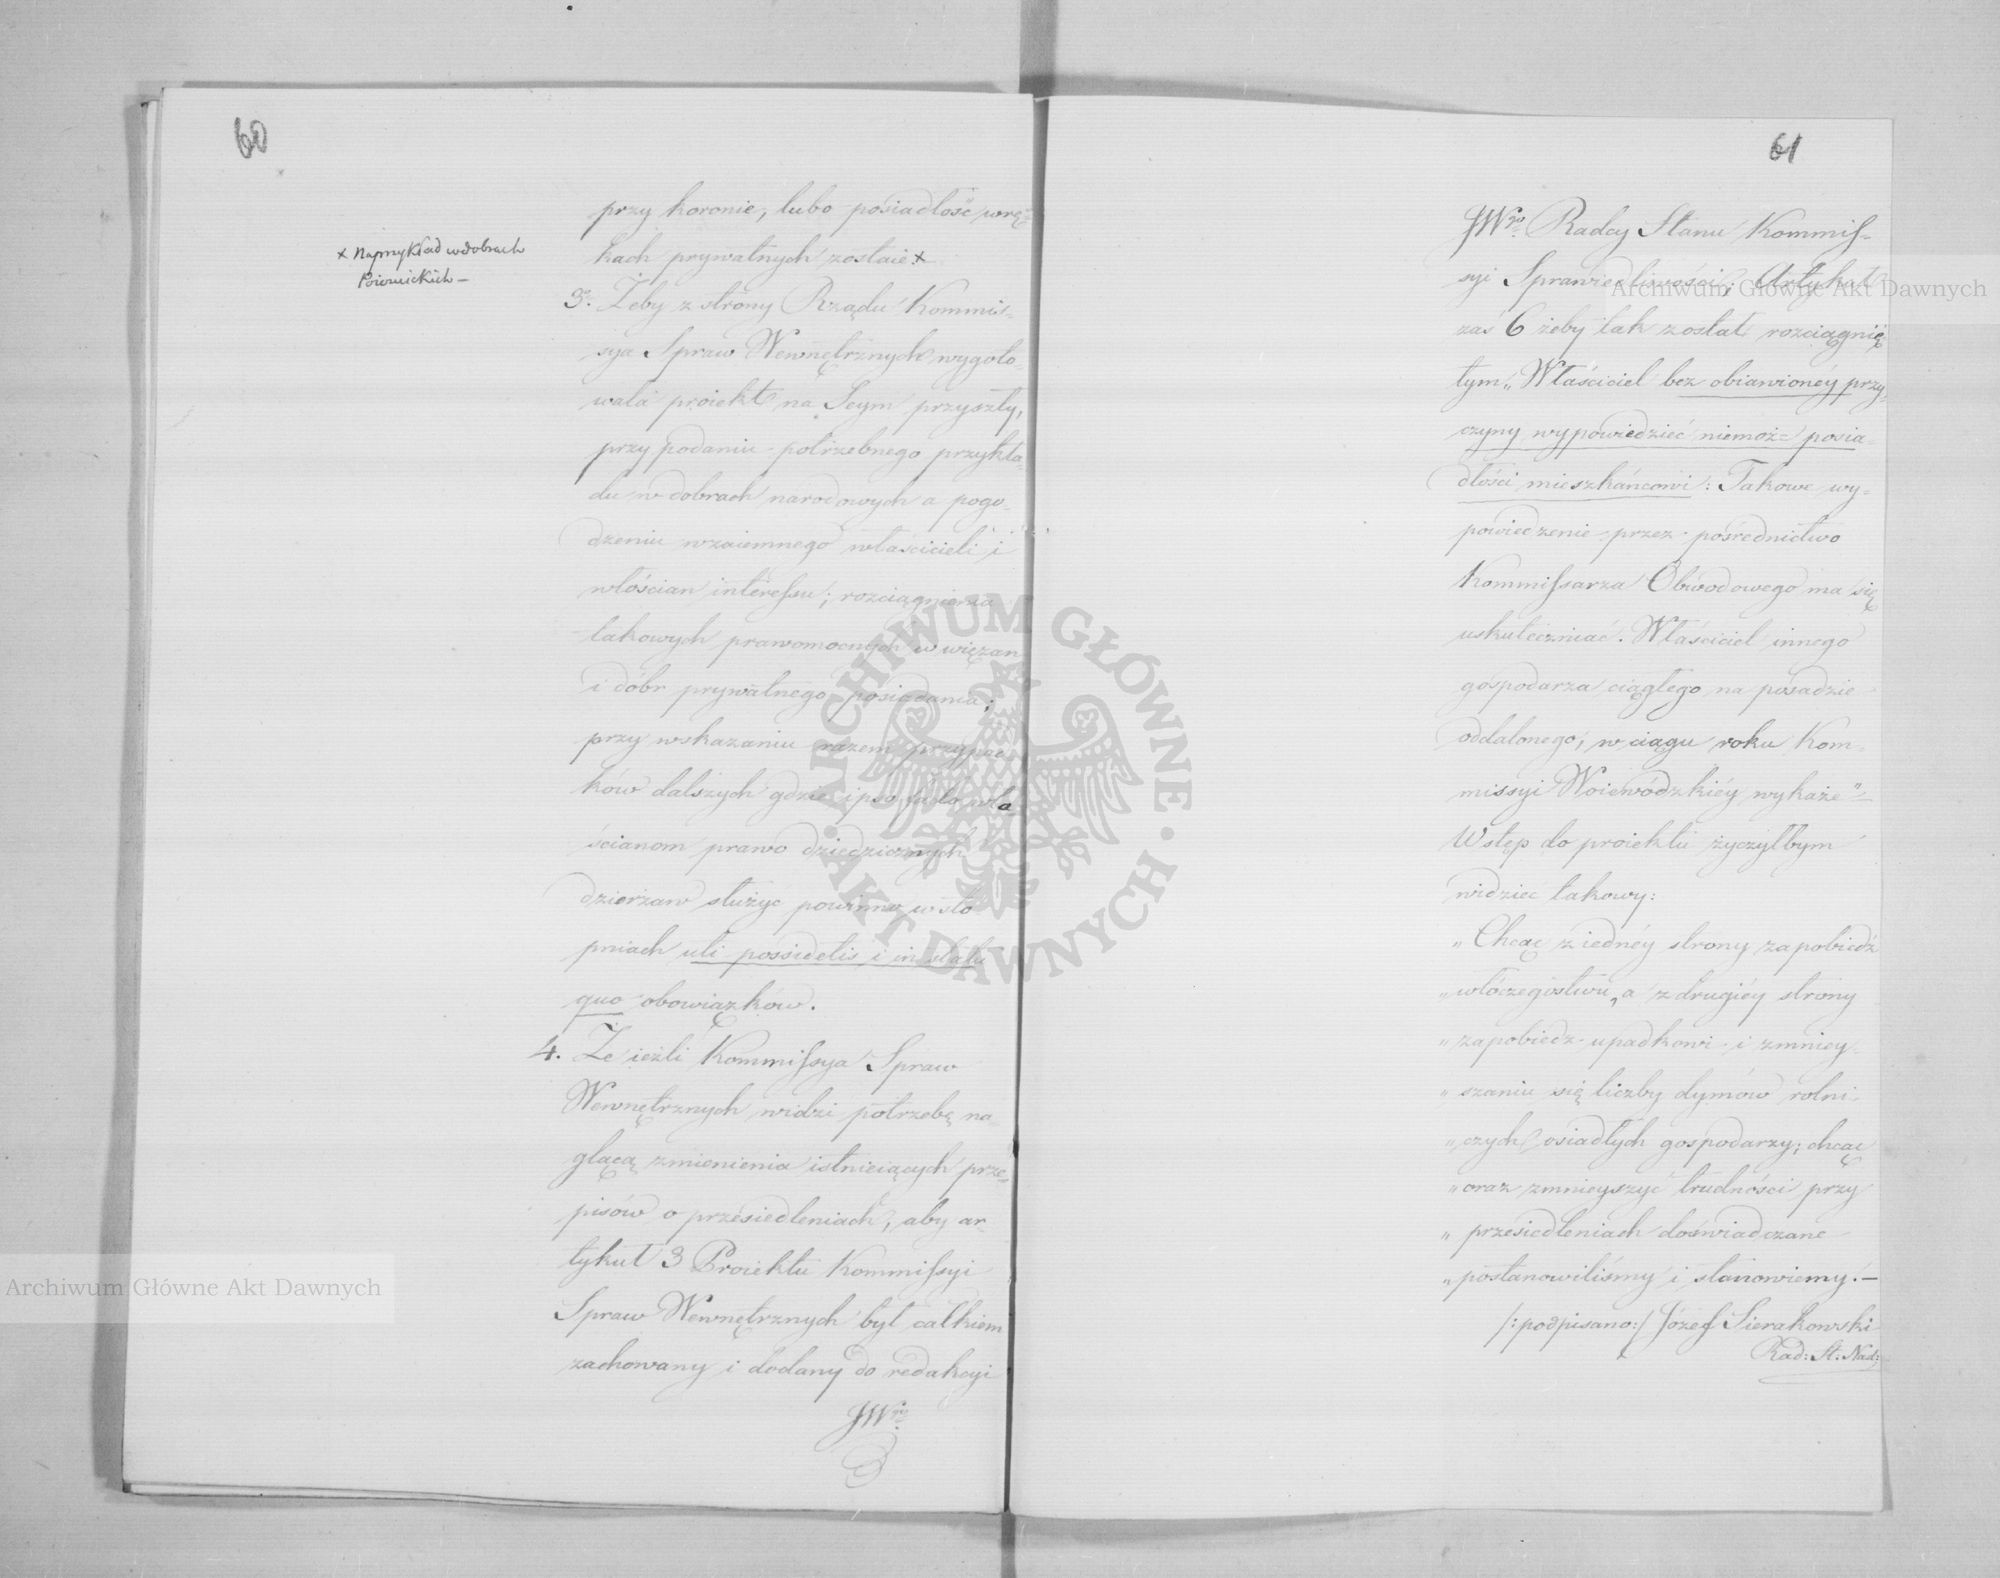 60
× Naprzykład w dobrach
przy koronie, lubo posiadłość w rę-
kach prywatnych zostaie ×
3. Żeby z strony Rządu Kommis-
sya Spraw Wewnętrznych wygoto-
wała proiekt na Seym przyszły,
przy podaniu potrzebnego przykła-
du w dobrach narodowych a pogo-
dzeniu wzaiemnego właścicieli i
włościan interessu; rozciągnienia
takowych prawomocnych
i dóbr prywatnego posiadania;
przy wskazaniu razem przypad-
ków dalszych gdzie ipso facto wło-
ścianom prawo dziedzicznych
dzierżaw służyć powinno w sto-
pniach uti possidetis i in statu
quo obowiązków.
4. Że ieżli Kommissya Spraw
Wewnętrznych widzi potrzebę na-
glącą zmienienia istnieiących prze-
pisów o przesiedleniach, aby ar-
tykuł 3 Proiektu Kommissyi
Spraw Wewnętrznych był całkiem
zachowany i dodany do redakcyi
JWgo
61
JWgo Radcy Stanu Kommis-
syi Sprawiedliwości; Artykuł
zaś 6 żeby tak został rozciągnię-
tym „Właściciel bez obiawionéy przy-
czyny wypowiedzieć niemoże posia-
dłości mieszkańcowi: Takowe wy-
powiedzenie przez pośrednictwo
Kommissarza Obwodowego ma się
uskuteczniać. Właściciel innego
gospodarza ciągłego na posadzie
oddalonego, w ciągu roku Kom-
missyi Woiewódzkiéy wykaże"
Wstęp do proiektu życzyłbym
widzieć takowy:
„Chcąc z iednéy strony zapobiedz
„włóczegostwu, a z drugiéy strony
„zapobiedz upadkowi i zmniey-
„szaniu się liczby dymów rolni-
„czych, osiadłych gospodarzy; chcąc
„oraz zmnieyszyć trudności przy
„przesiedleniach doświadczane
„postanowiliśmy i stanowiemy.—
/:podpisano:/ Józef Sierakowski
Rad: St: Nad:
Archiwum Główne Akt Dawnych
Archiwum Główne Akt Dawnych
ARCHIWUM GŁÓWNE · AKT DAWNYCH ·